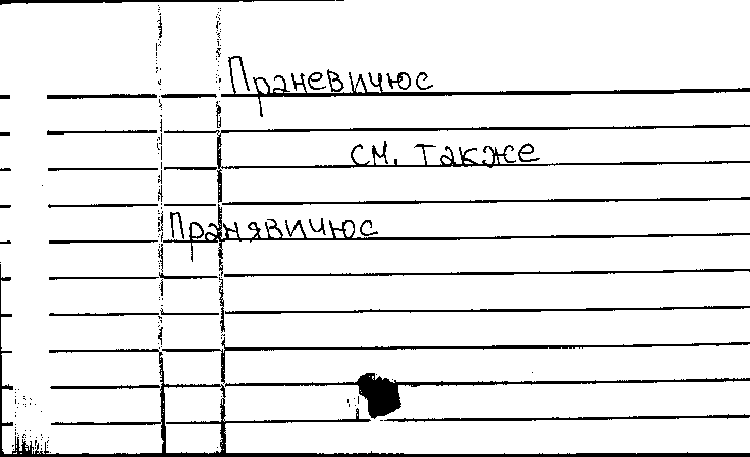 Праневичюс
см. также
Пранявичюс